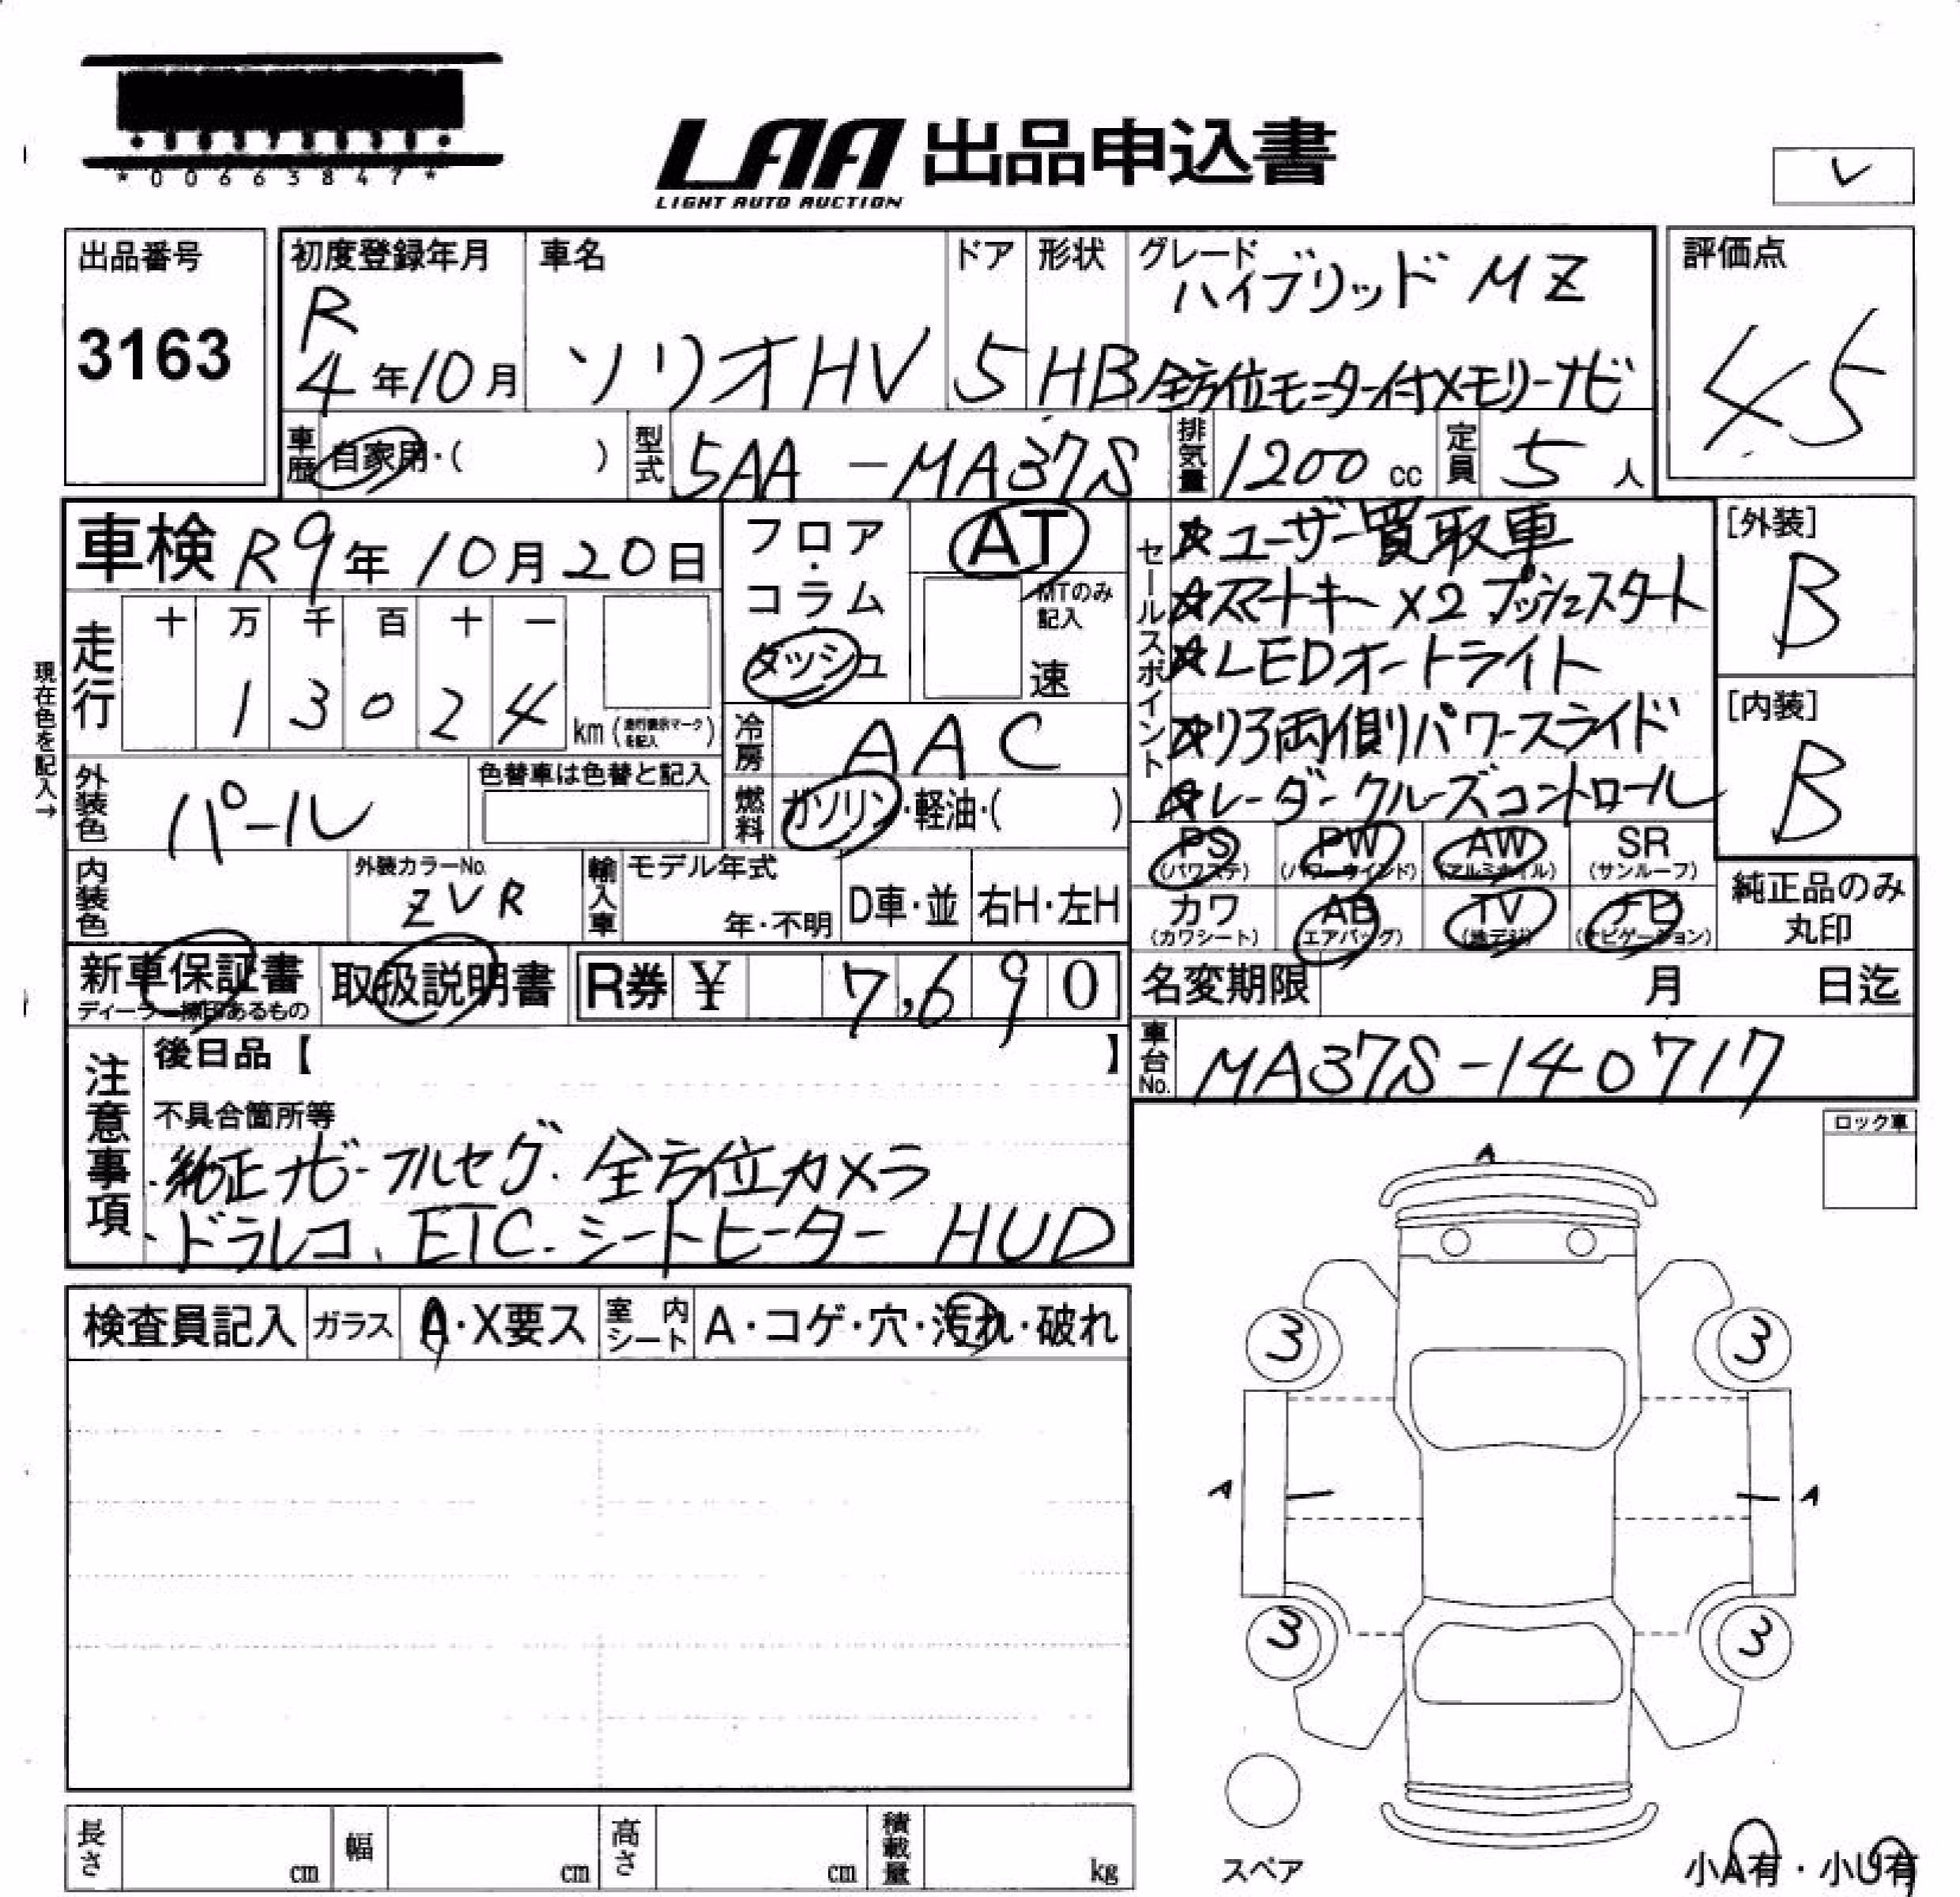 *00663847*
LAA 出品申込書
LIGHT AUTO AUCTION
出品番号
3163
初度登録年月
R
4年10月
車名
ソリオHV
ドア
5
形状
HB
グレード
ハイブリッド MZ
全方位モニター付メモリーナビ
評価点
4.5
車歴 自家用・( )
型式 5AA-MA37S
排気量 1200 cc
定員 5 人
車検 R9年10月20日
フロア・コラム・ダッシュ
AT
MTのみ記入
速
現在色を記入→
走行
十 万 千 百 十 一
1 3 0 2 4
km (走行表示マークを記入)
冷房 AAC
外装色 パール
色替車は色替と記入
燃料 ガソリン・軽油・( )
内装色
外装カラーNo.
ZVR
輸入車
モデル年式
年・不明
D車・並
右H・左H
セールスポイント
☆ユーザー買取車
☆スマートキー×2 プッシュスタート
☆LEDオートライト
☆リヤ両側パワースライド
☆レーダークルーズコントロール
[外装]
B
[内装]
B
PS (パワステ)
PW (パワーウインド)
AW (アルミホイル)
SR (サンルーフ)
カワ (カワシート)
AB (エアバッグ)
TV (地デジ)
ナビ (ナビゲーション)
純正品のみ丸印
新車保証書
ディーラー捺印あるもの
取扱説明書
R券 ¥ 7,690
名変期限 月 日迄
車台No. MA37S-140717
注意事項
後日品【 】
不具合箇所等
・純正ナビ・フルセグ・全方位カメラ
・ドラレコ、ETC・シートヒーター HUD
ロック車
検査員記入
ガラス A・X要ス
室内シート A・コゲ・穴・汚れ・破れ
A
3
3
A
A
3
3
スペア
小A有・小U有
長さ cm
幅 cm
高さ cm
積載量 kg